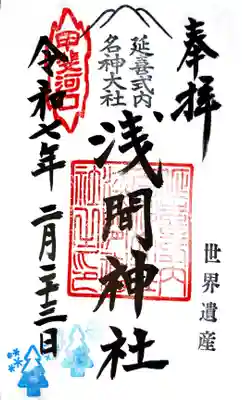 奉拝
世界遺産
延喜式内
名神大社
浅間神社
甲斐河口
令和七年 二月二十三日